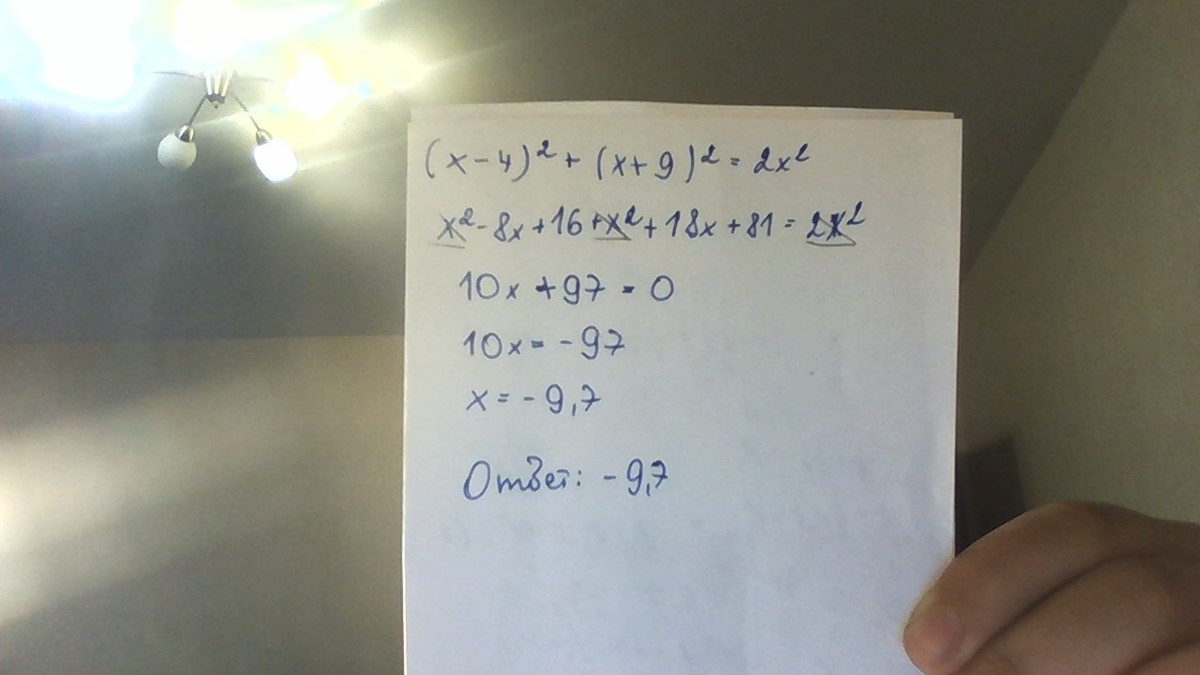 (x-4)² + (x+9)² = 2x²
x² - 8x + 16 + x² + 18x + 81 = 2x²
10x + 97 = 0
10x = -97
x = -9,7
Ответ: -9,7